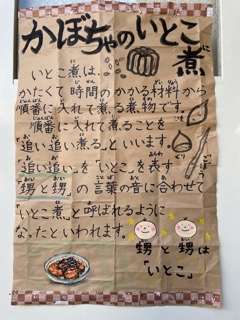 かぼちゃのいとこ煮
いとこ煮は、
かたくて時間のかかる材料から
順番に入れて煮る煮物です。
順番に入れて煮ることを
「追い追い煮る」といいます。
「追い追い」を「いとこ」を表す
「甥と甥」の言葉の音に合わせて
「いとこ煮」と呼ばれるように
なったといわれます。
くり
ごぼう
甥と甥は
「いとこ」